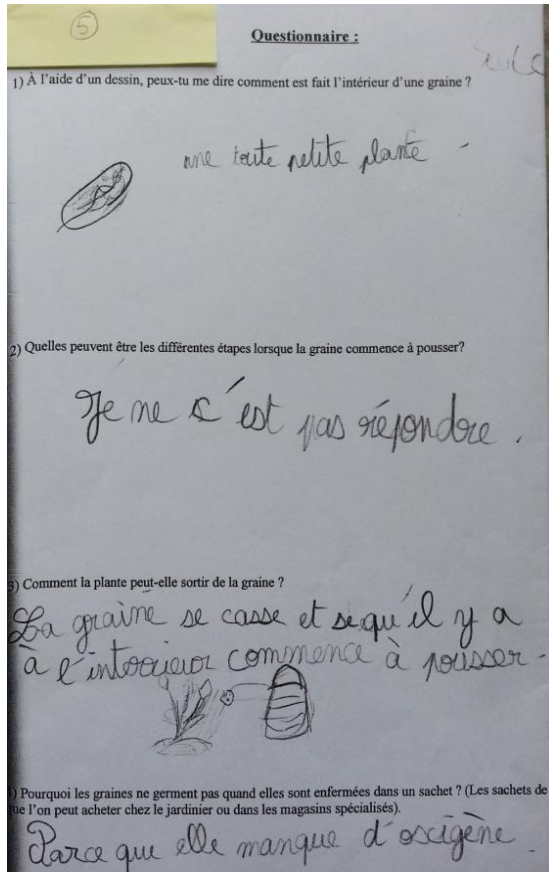 5
Questionnaire :
1) À l'aide d'un dessin, peux-tu me dire comment est fait l'intérieur d'une graine ?
une toute petite plante
2) Quelles peuvent être les différentes étapes lorsque la graine commence à pousser?
Je ne s'est pas répondre.
3) Comment la plante peut-elle sortir de la graine ?
La graine se casse et se qu'il y a
à l'interieur commence à pousser.
) Pourquoi les graines ne germent pas quand elles sont enfermées dans un sachet ? (Les sachets de
que l'on peut acheter chez le jardinier ou dans les magasins spécialisés).
Parce que elle manque d'oscigène